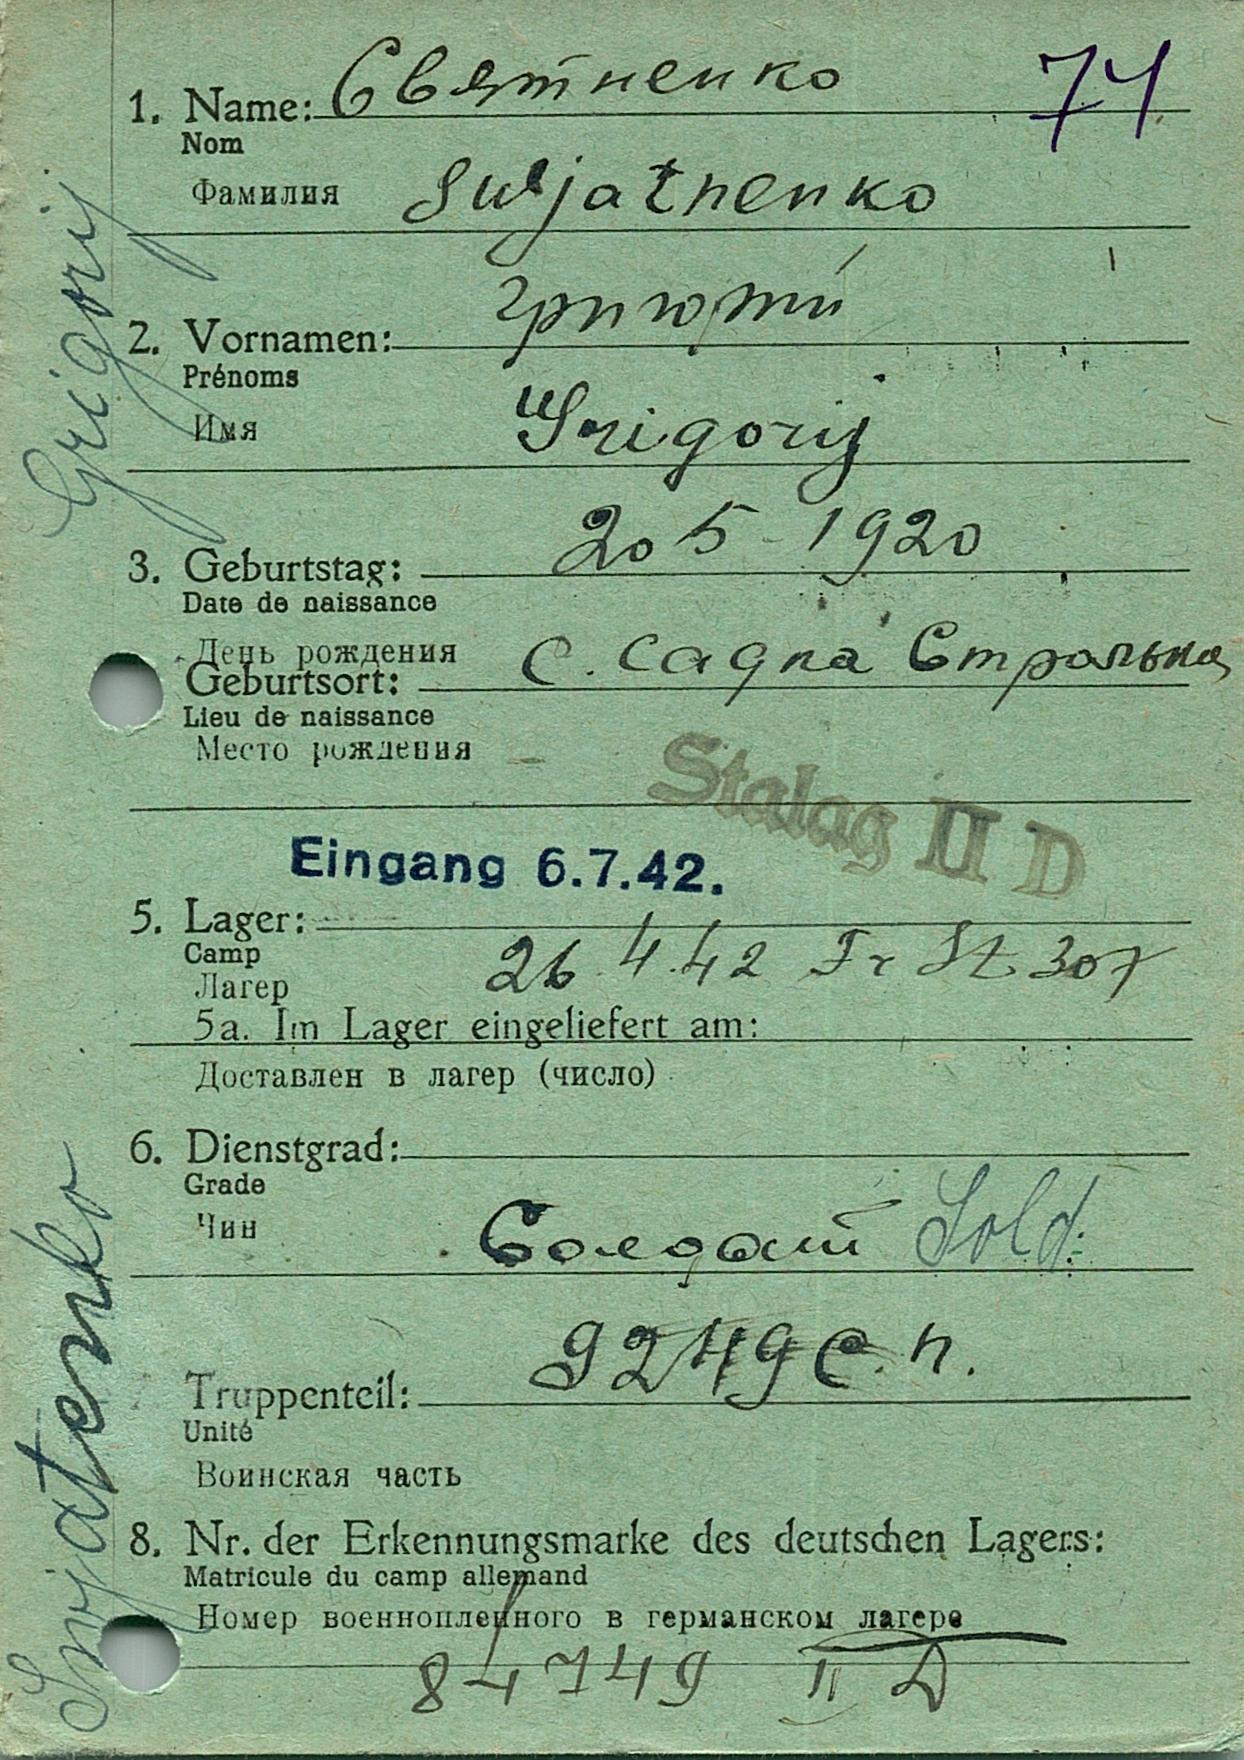 1. Name: Святненко 74
Nom
Фамилия Swjathenko
2. Vornamen: григорий
Prénoms
Имя Grigorij
3. Geburtstag: 20 5 - 1920
Date de naissance
День рождения
Geburtsort: С. Садка
Lieu de naissance
Место рождения
Stalag II D
Eingang 6.7.42.
5. Lager:
Camp 26.4.42 Fr St 307
Лагер
5a. Im Lager eingeliefert am:
Доставлен в лагер (число)
6. Dienstgrad:
Grade
Чин Солдат Sold.
9249 с. п.
Truppenteil:
Unité
Воинская часть
8. Nr. der Erkennungsmarke des deutschen Lagers:
Matricule du camp allemand
Номер военнопленного в германском лагере
84749 II D
Swjatenko Grigorij